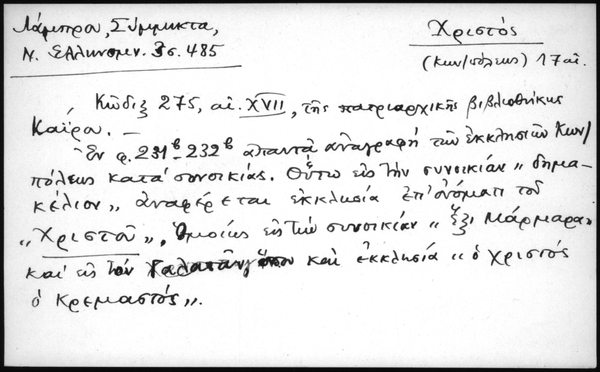 Λάμπρου, Σύμμικτα,
Ν. Ἑλληνομν. 3 σ. 485
Χριστός
(Κων/πόλεως) 17 αἰ.
Κῶδιξ 275, αἰ. XVII, τῆς πατριαρχικῆς βιβλιοθήκης
Καΐρου. —
Ἐν φ. 231β-232β ἀπαντᾷ ἀναγραφή τῶν ἐκκλησιῶν Κων/
πόλεως κατά συνοικίας. Οὕτω εἰς τήν συνοικίαν „ δημα-
κέλιον „ ἀναφέρεται ἐκκλησία ἐπ' ὀνόματι τοῦ
„ Χριστοῦ „. Ὁμοίως εἰς τήν συνοικίαν „ Ἕξι Μάρμαρα „
καί εἰς τόν καί ἐκκλησία „ ὁ Χριστός
ὁ Κρεμαστός „.